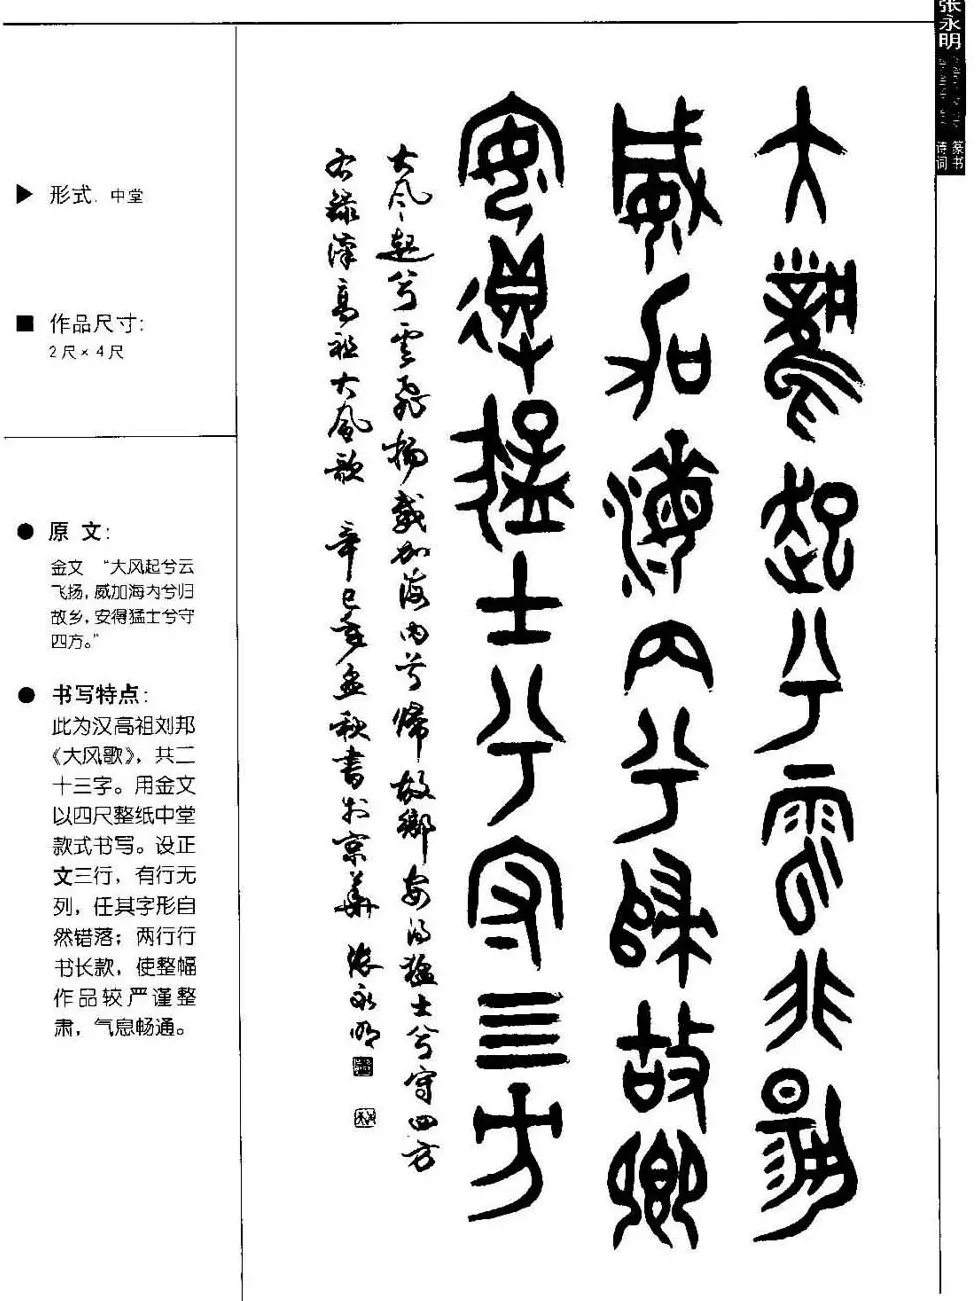 张永明
篆书
诗词
▶ 形式：中堂
■ 作品尺寸：
2尺×4尺
● 原文：
金文 “大风起兮云
飞扬，威加海内兮归
故乡，安得猛士兮守
四方。”
● 书写特点：
此为汉高祖刘邦
《大风歌》，共二
十三字。用金文
以四尺整纸中堂
款式书写。设正
文三行，有行无
列，任其字形自
然错落；两行行
书长款，使整幅
作品较严谨整
肃，气息畅通。
大风起兮云飞扬
威加海内兮归故乡
安得猛士兮守四方
大风起兮雲飛揚威加海内兮歸故鄉安得猛士兮守四方
右録漢高祖大風歌 辛巳年孟秋書於京華 張永明